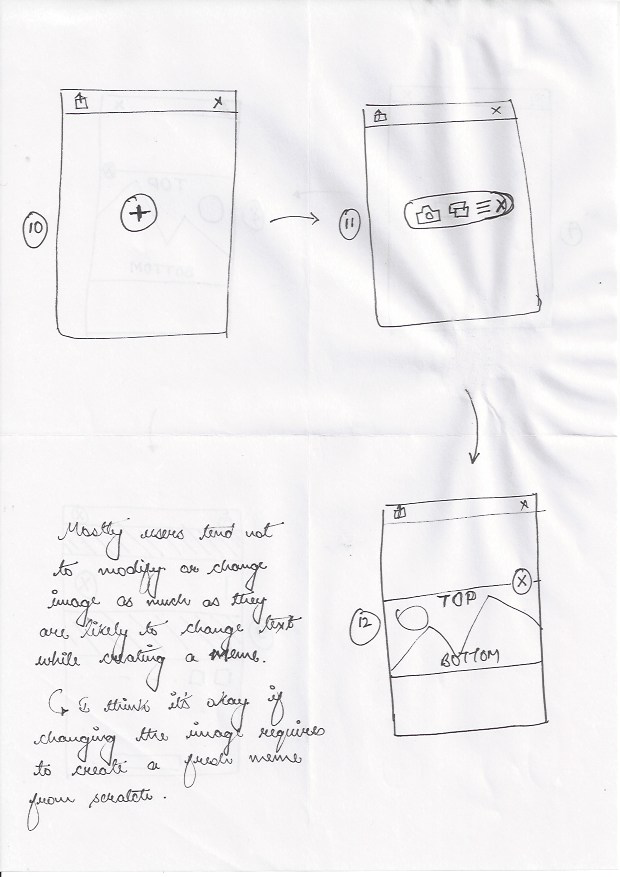 X
10
+
X
11
X
X
12
X
TOP
BOTTOM
Mostly users tend not
to modify or change
image as much as they
are likely to change text
while creating a meme.
↳ I think it's okay if
changing the image requires
to create a fresh meme
from scratch.